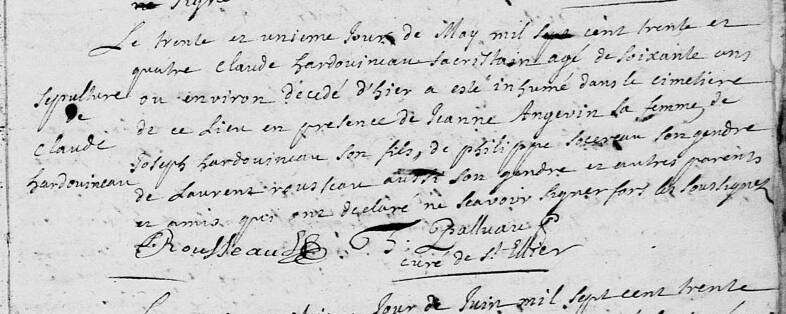 ne signé
Le trente et unieme Jour de May mil sept cent trente et
quatre Claude hardouineau Sacristain agé de Soixante ans
ou environ décedé d'hier a esté inhumé dans le cimetiere
de ce Lieu en presence de Jeanne Angevin Sa femme, de
Joseph hardouineau Son fils, de philippe Socereau Son gendre
de Laurent rousseau aussi Son gendre et autres parents
et amis qui ont declaré ne Sçavoir Signer fors les Soussignez
sepulture
de
Claude
hardouineau
Rousseau
Palluau
curé de St Ellier
Jour de Juin mil sept cent trente